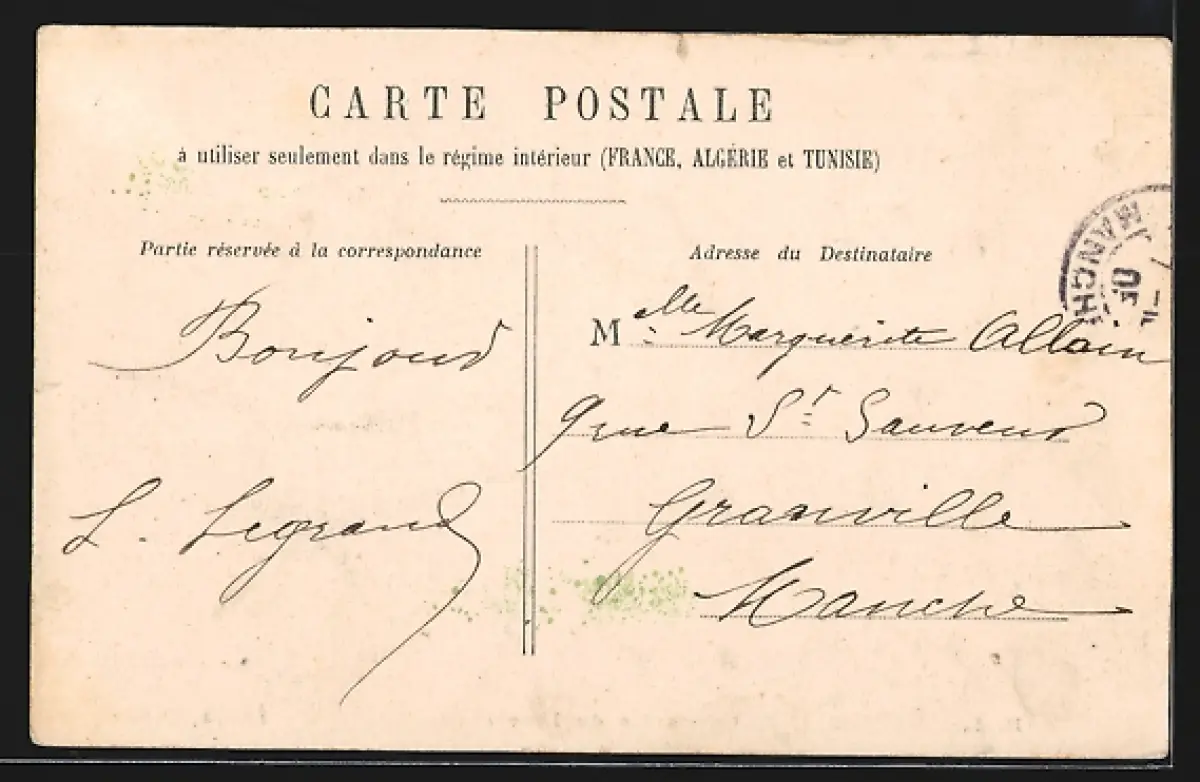 CARTE POSTALE
à utiliser seulement dans le régime intérieur (FRANCE, ALGÉRIE et TUNISIE)
Partie réservée à la correspondance
Bonjour
L. Legrand
Adresse du Destinataire
Melle Marguerite Allain
9 rue St Sauveur
Granville
Manche
MANCH
05